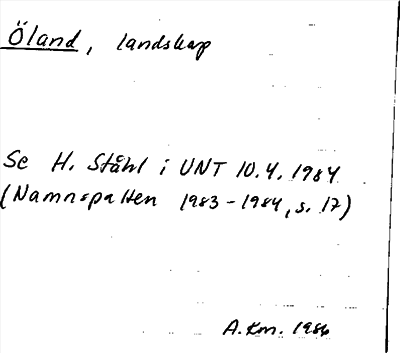 Öland, landskap
Se H. Ståhl i UNT 10.4.1984
(Namnspalten 1983-1984, s. 17)
A.Km. 1986